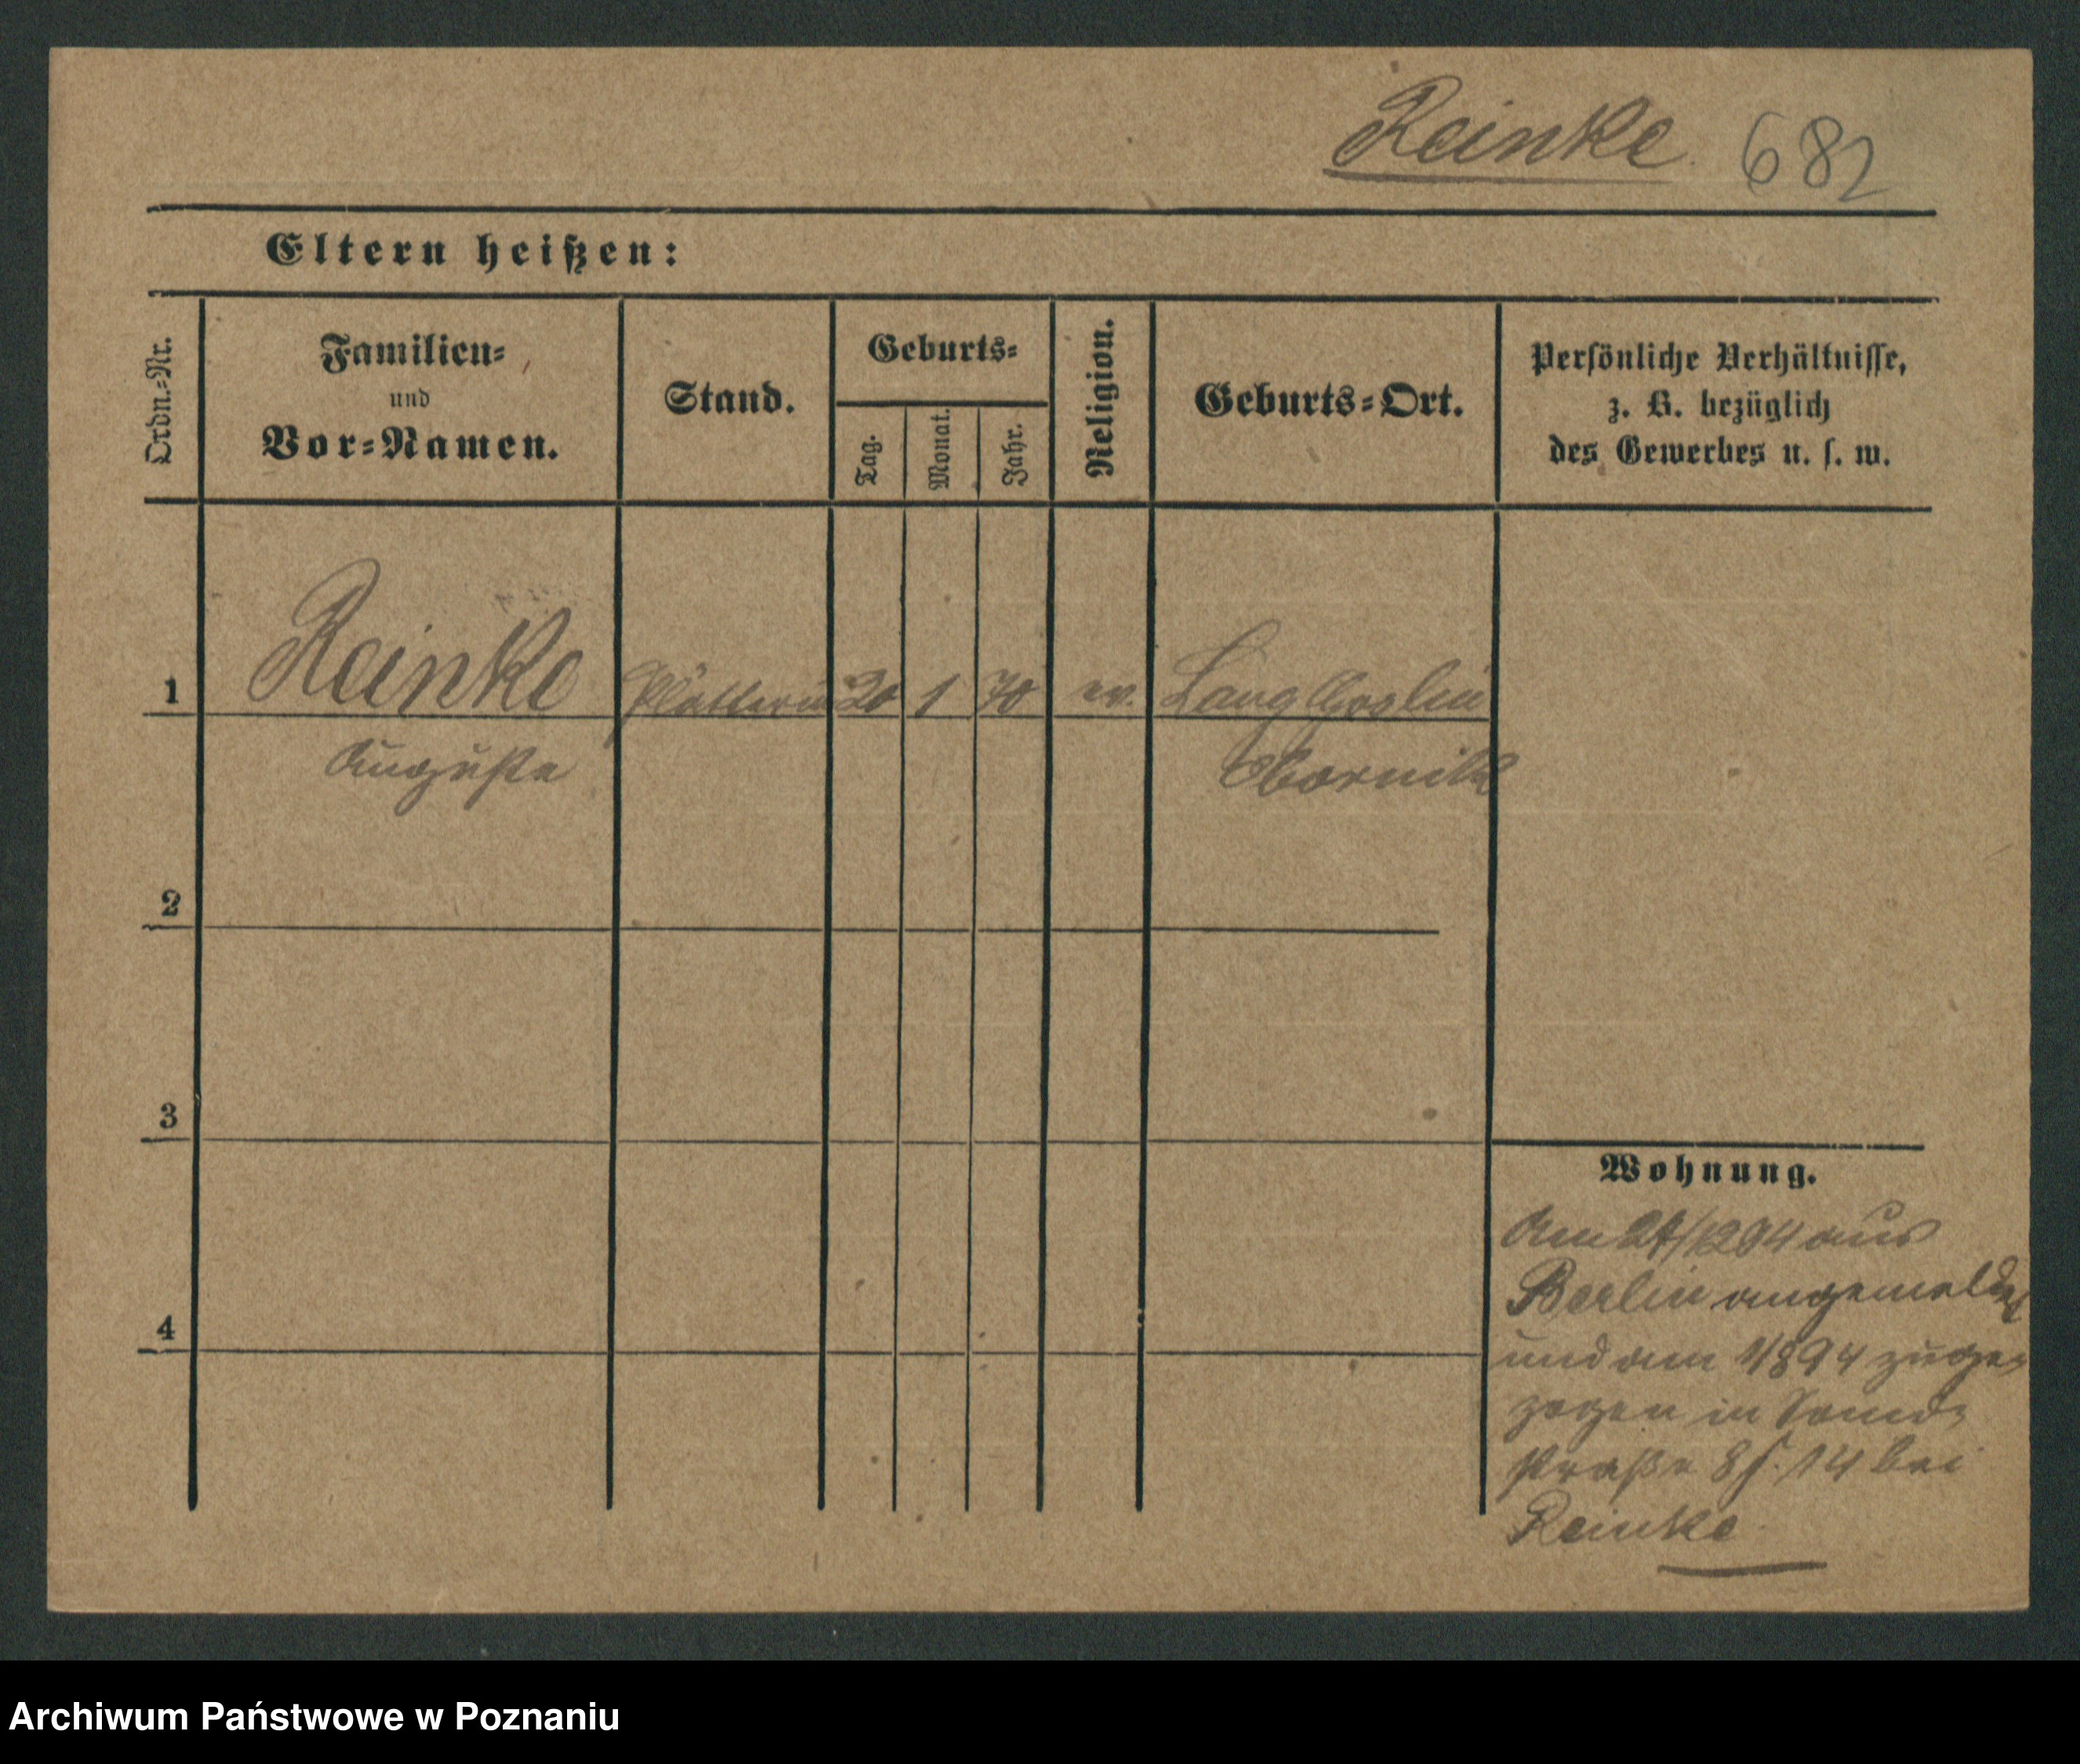 Reinke 682
Eltern heißen:
Ordn.=Nr.
Familien=
und
Vor=Namen.
Stand.
Geburts=
Tag.
Monat.
Jahr.
Religion.
Geburts=Ort.
Persönliche Verhältnisse,
z. B. bezüglich
des Gewerbes u. s. w.
1 Reinke Plätterin 20 1 70 ev. Lang Goslin
Auguste Obornik
2
3
4
Wohnung.
Am aus
Berlin angemeldet
und am zuge=
zogen in
straße 8 14 bei
Reinke
Archiwum Państwowe w Poznaniu